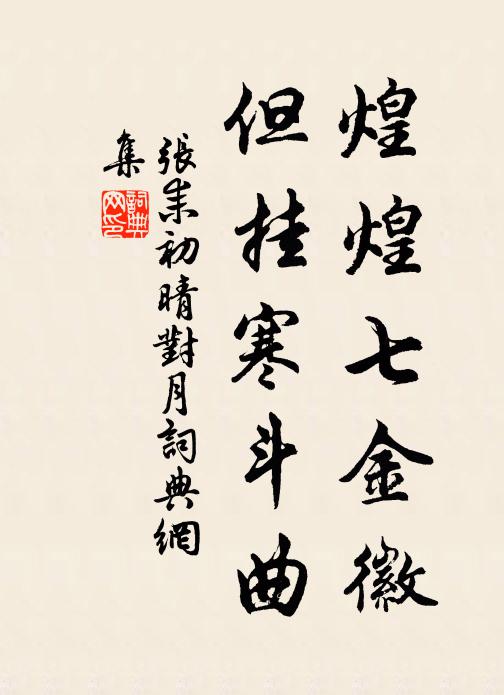 煌煌七金徽
但挂寒斗曲
張耒初晴對月詞典網
集
詞典网印